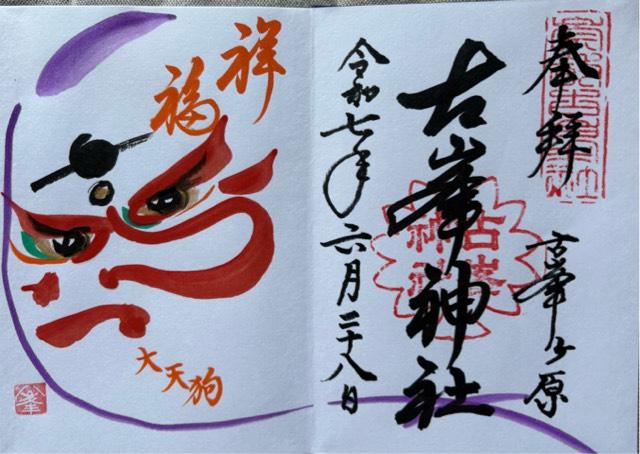 奉拝
古峯ヶ原
古峯神社
古峯
神社
令和七年六月二十八日
祥福
大天狗
峯